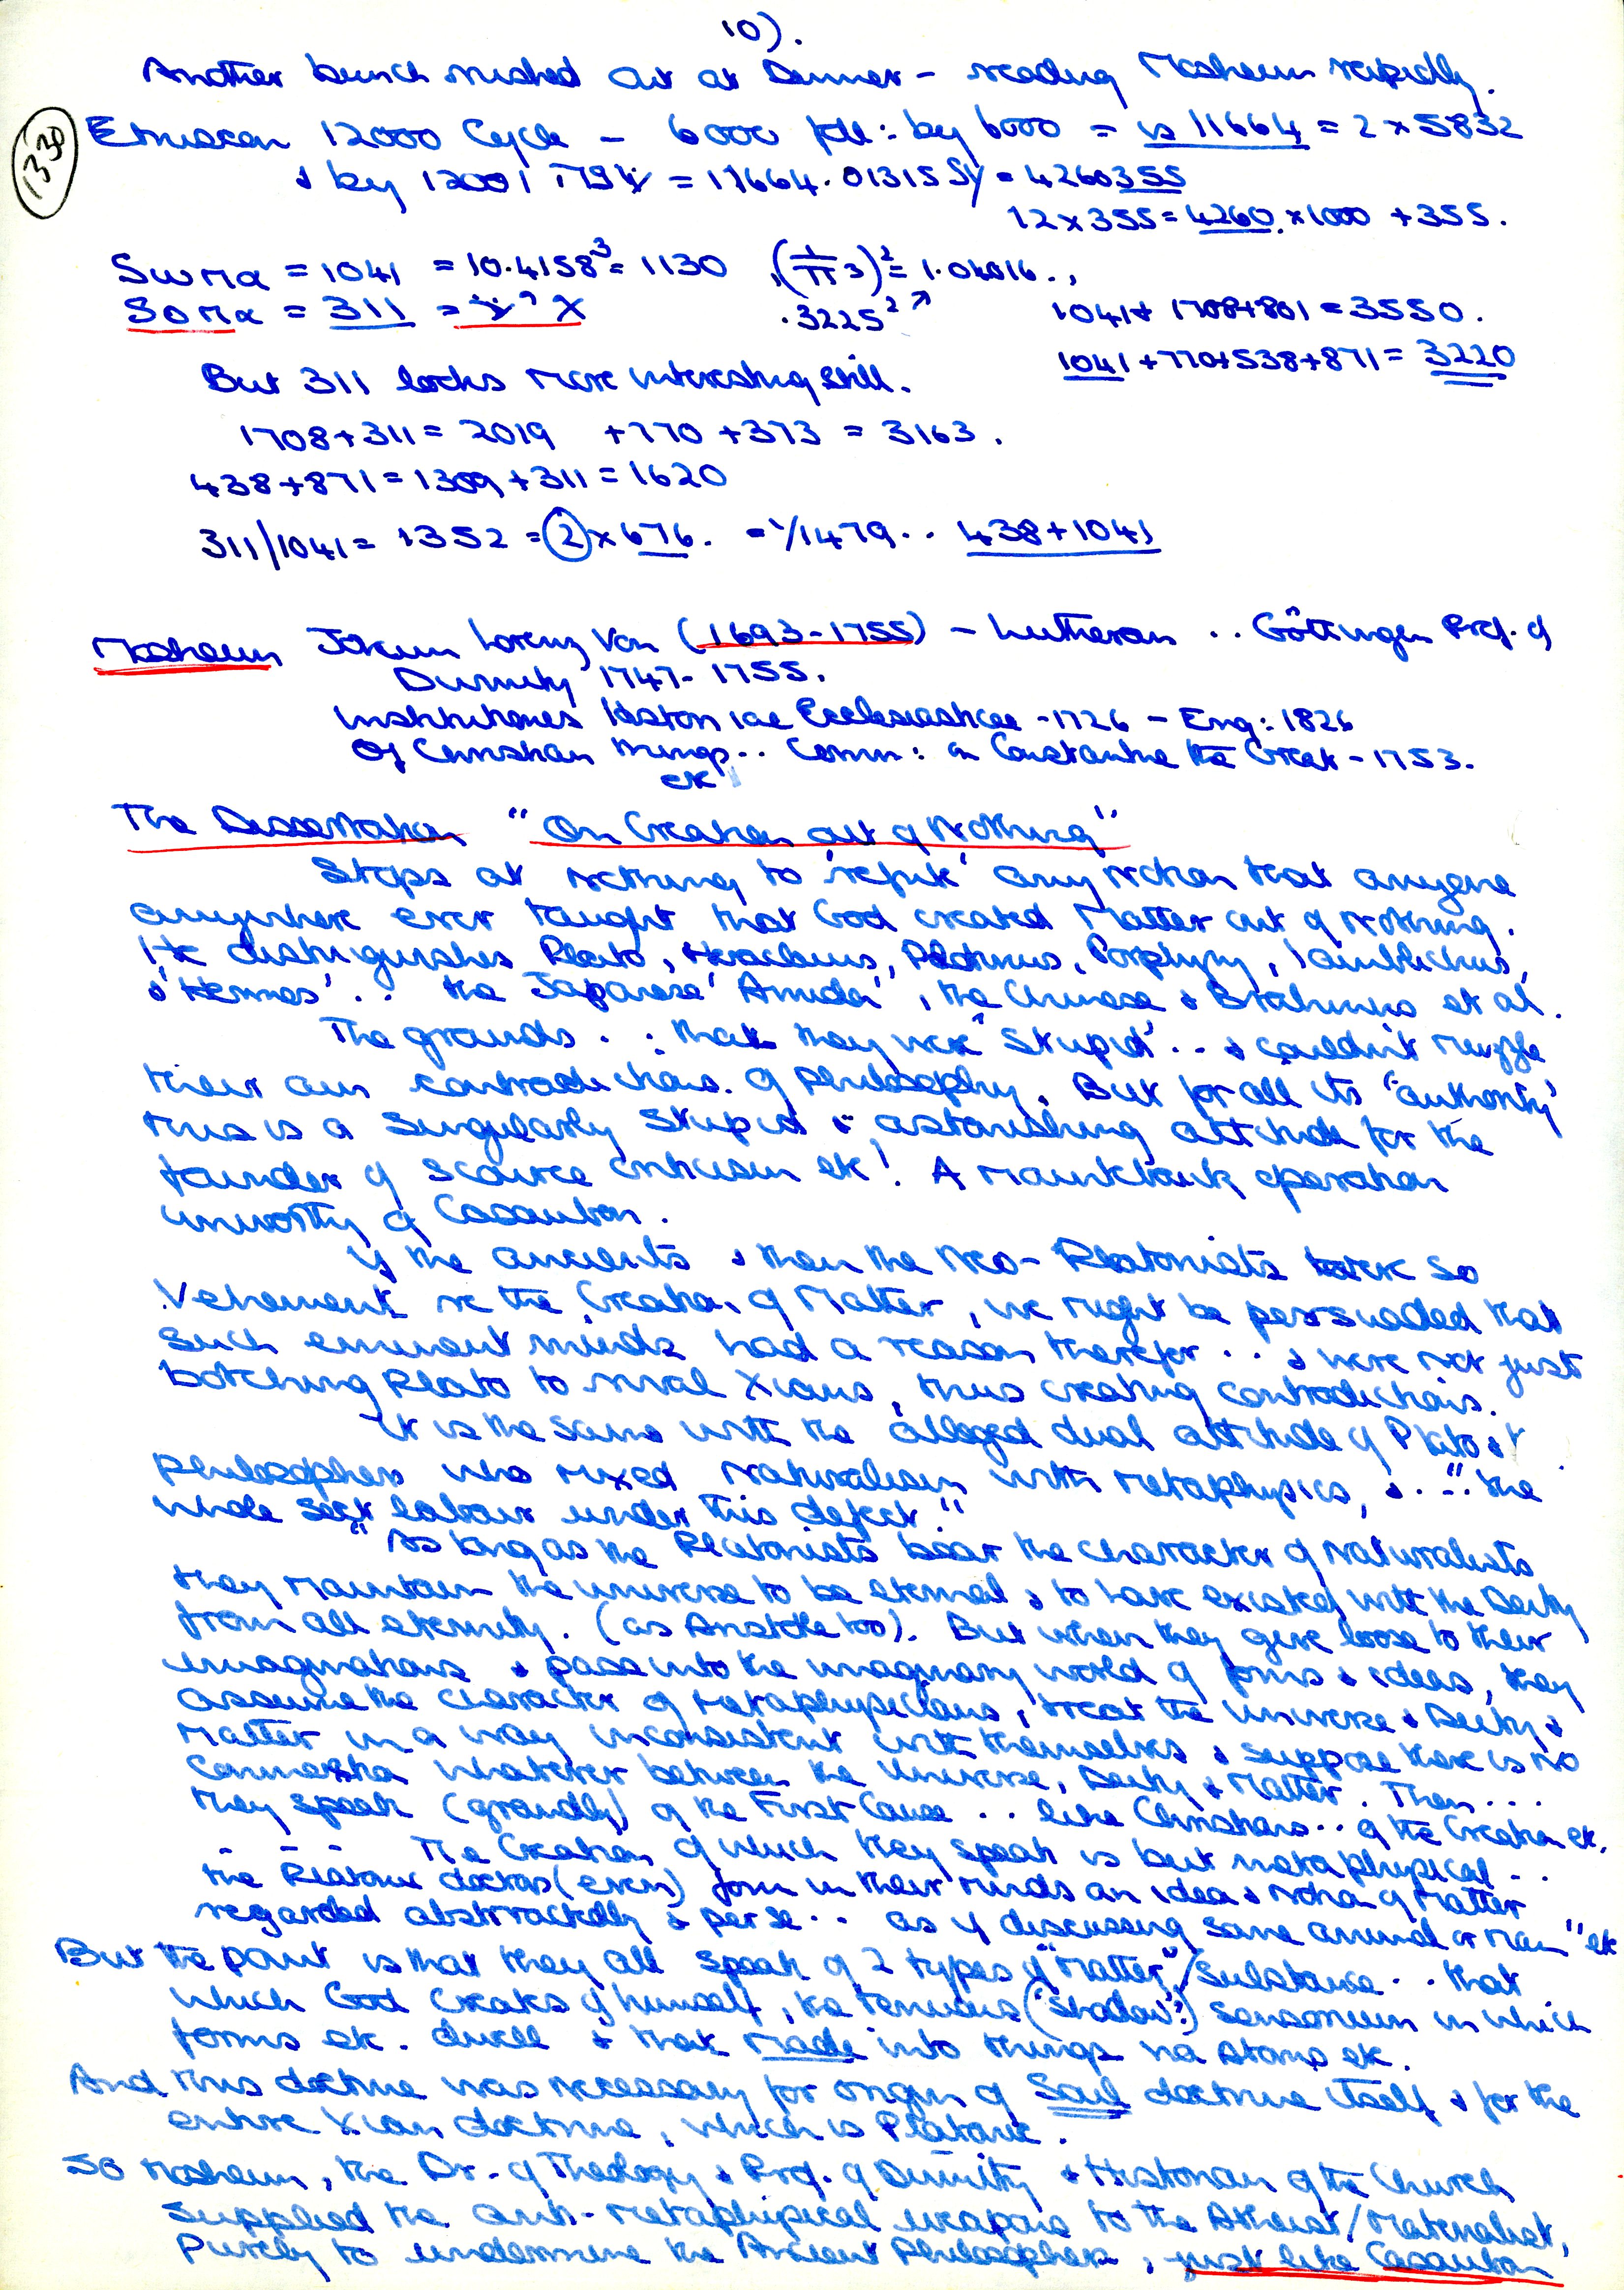 10).
Another bunch rushed out at Dinner - reading Mosheim rapidly.
1330
Etruscan 12000 Cycle - 6000 foll: by 6000 = is 11664 = 2 x 5832
& by 12001 = 11664.01315 Sy = 4260355
12 x 355 = 4260 x 1000 + 355.
Swma = 1041 = 10.4158³ = 1130 (1/π 3)² = 1.04016.,
Soma = 311 = X .3225² 1041 + 1708 + 801 = 3550.
But 311 looks more interesting still. 1041 + 770 + 538 + 871 = 3220
1708 + 311 = 2019 + 770 + 373 = 3163.
438 + 871 = 1309 + 311 = 1620
311/1041 = 1352 = 2 x 676. = 1/1479.. 438 + 1041
Mosheim Johann Lorenz Von (1693-1755) - Lutheran .. Göttingen Prof. of
Divinity 1747-1755.
Institutiones Historiae Ecclesiasticae - 1726 - Eng: 1826
Of Christian things.. Comm: on Constantine the Great - 1753.
etc
The Dissertation "On Creation out of Nothing"
Stops at nothing to 'refute' any notion that anyone
anywhere ever taught that God created Matter out of Nothing.
He distinguishes Plato, Hierocles, Plotinus, Porphyry, Iamblichus,
& 'Hermes'.. the Japanese 'Amida', the Chinese & Brahmins et al.
The grounds..: that they were 'stupid'.. & couldn't muzzle
their own contradictions of philosophy. But for all its 'authority'
this is a singularly stupid & astonishing attitude for the
founder of source criticism etc! A mountebank operation
unworthy of Casaubon.
If the ancients & then the Neo-Platonists were so
vehement re the Creation of Matter, we might be persuaded that
such eminent minds had a reason therefor.. & were not just
botching Plato to rival Xians, thus creating contradictions.
It is the same with the alleged dual attitude of Plato &
philosophers who mixed Naturalism with metaphysics, &.. "the
whole sect labour under this defect."
"As long as the Platonists bear the character of Naturalists
they maintain the universe to be eternal & to have existed with the Deity
from all eternity. (as Aristotle too). But when they give loose to their
imaginations & pass into the imaginary world of forms & ideas, they
assume the character of metaphysicians, treat the Universe & Deity &
Matter in a way inconsistent with themselves & suppose there is no
connection whatever between the Universe, Deity & Matter. Then...
they speak (grandly) of the First Cause.. like Christians.. of the Creation etc.
- - - The Creation of which they speak is but metaphysical..
the Platonic doctors (even) form in their minds an idea & notion of Matter
regarded abstractedly & per se.. as if discussing some animal or man" etc
But the point is that they all speak of 2 types of "Matter"/Substance.. that
which God creates of himself, the tenuous ('shadow'?) sensorium in which
forms etc. dwell & that made into things via atoms etc.
And this doctrine was necessary for origin of Soul doctrine itself & for the
entire Xian doctrine, which is Platonic.
So Mosheim, the Dr. of Theology & Prof. of Divinity & Historian of the Church
supplied the anti-metaphysical weapons to the Atheist/Materialist,
Purely to undermine the Ancient Philosophers, just like Casaubon